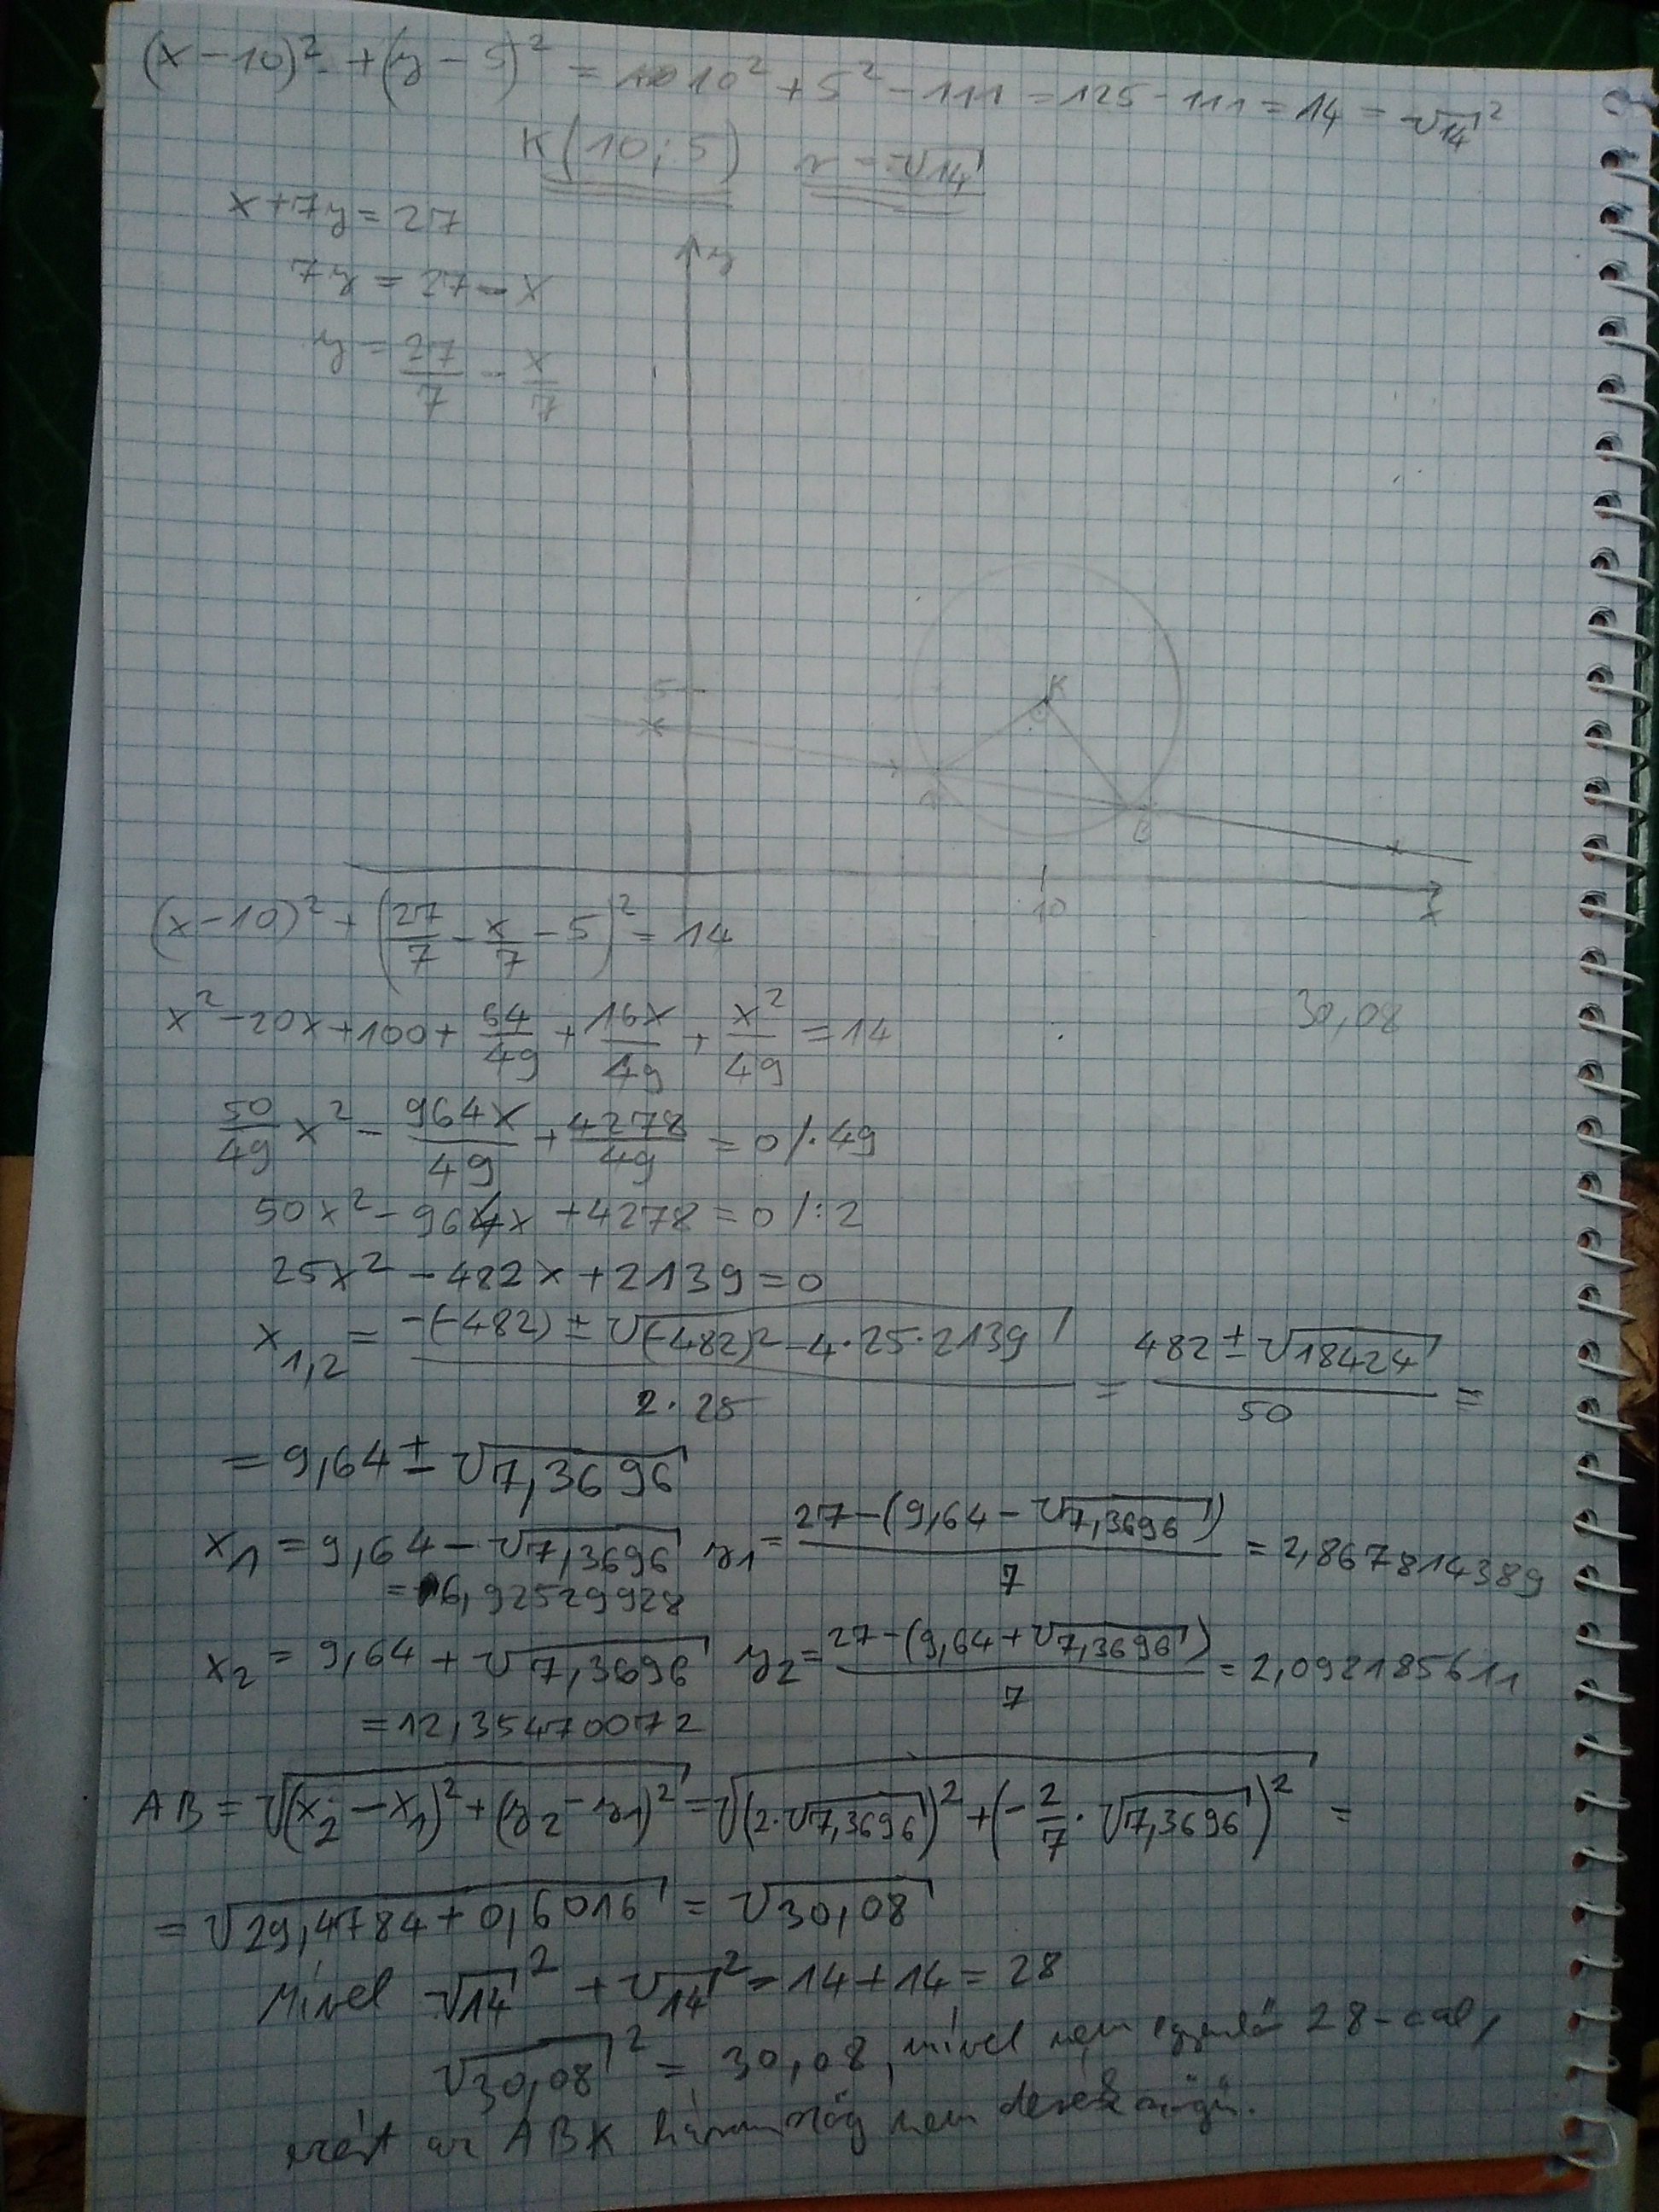 (x-10)² + (y-5)² = 10² + 5² - 111 = 125 - 111 = 14 = √14²
K(10;5) r = √14
x+7y = 27
7y = 27 - x
y = 27/7 - x/7
y
5
K
A
B
10
x
(x-10)² + (27/7 - x/7 - 5)² = 14
x² - 20x + 100 + 64/49 + 16x/49 + x²/49 = 14
30,08
50/49 x² - 964x/49 + 4278/49 = 0 /·49
50x² - 964x + 4278 = 0 /:2
25x² - 482x + 2139 = 0
x1,2 = (-(-482) ± √((-482)² - 4·25·2139))/(2·25) = (482 ± √18424)/50 =
= 9,64 ± √7,3696
x1 = 9,64 - √7,3696 y1 = (27-(9,64-√7,3696))/7 = 2,867814389
= 6,92529928
x2 = 9,64 + √7,3696 y2 = (27-(9,64+√7,3696))/7 = 2,092185611
= 12,35470072
AB = √((x2-x1)² + (y2-y1)²) = √((2·√7,3696)² + (-2/7·√7,3696)²) =
= √(29,4784 + 0,6016) = √30,08
Mivel √14² + √14² = 14 + 14 = 28
√30,08² = 30,08, mivel nem egyenlő 28-cal,
ezért az ABK háromszög nem derékszögű.